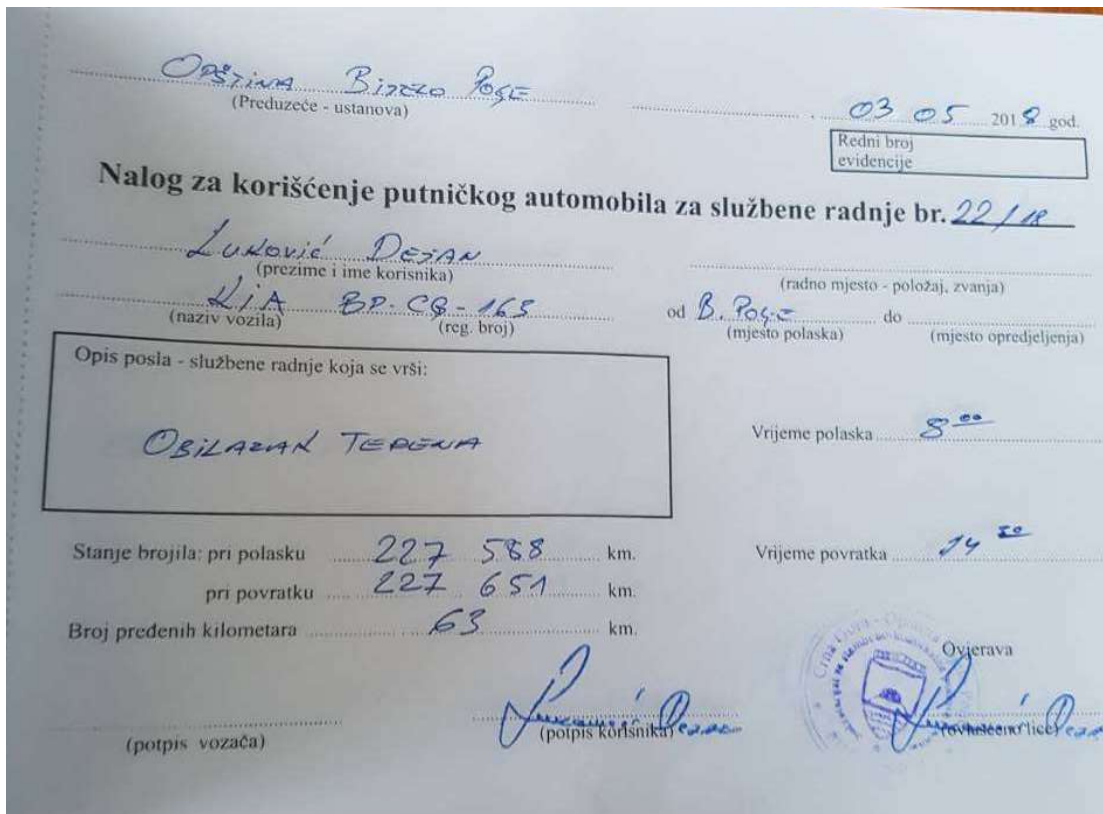 OPŠTINA BIJELO POLJE
(Preduzeće - ustanova)
03 05 2018 god.
Redni broj
evidencije
Nalog za korišćenje putničkog automobila za službene radnje br. 22/18
LUKOVIĆ DEJAN
(prezime i ime korisnika)
(radno mjesto - položaj, zvanja)
KIA BP-CG-163 od B. POLJE do
(naziv vozila) (reg. broj) (mjesto polaska) (mjesto opredjeljenja)
Opis posla - službene radnje koja se vrši:
OBILAZAK TERENA
Vrijeme polaska 8 00
Stanje brojila: pri polasku 227 588 km.
Vrijeme povratka 14
pri povratku 227 651 km.
Broj pređenih kilometara 63 km.
Crna Gora - Opština
Ovjerava
(potpis vozača) (potpis korisnika) (ovlašćeno lice)